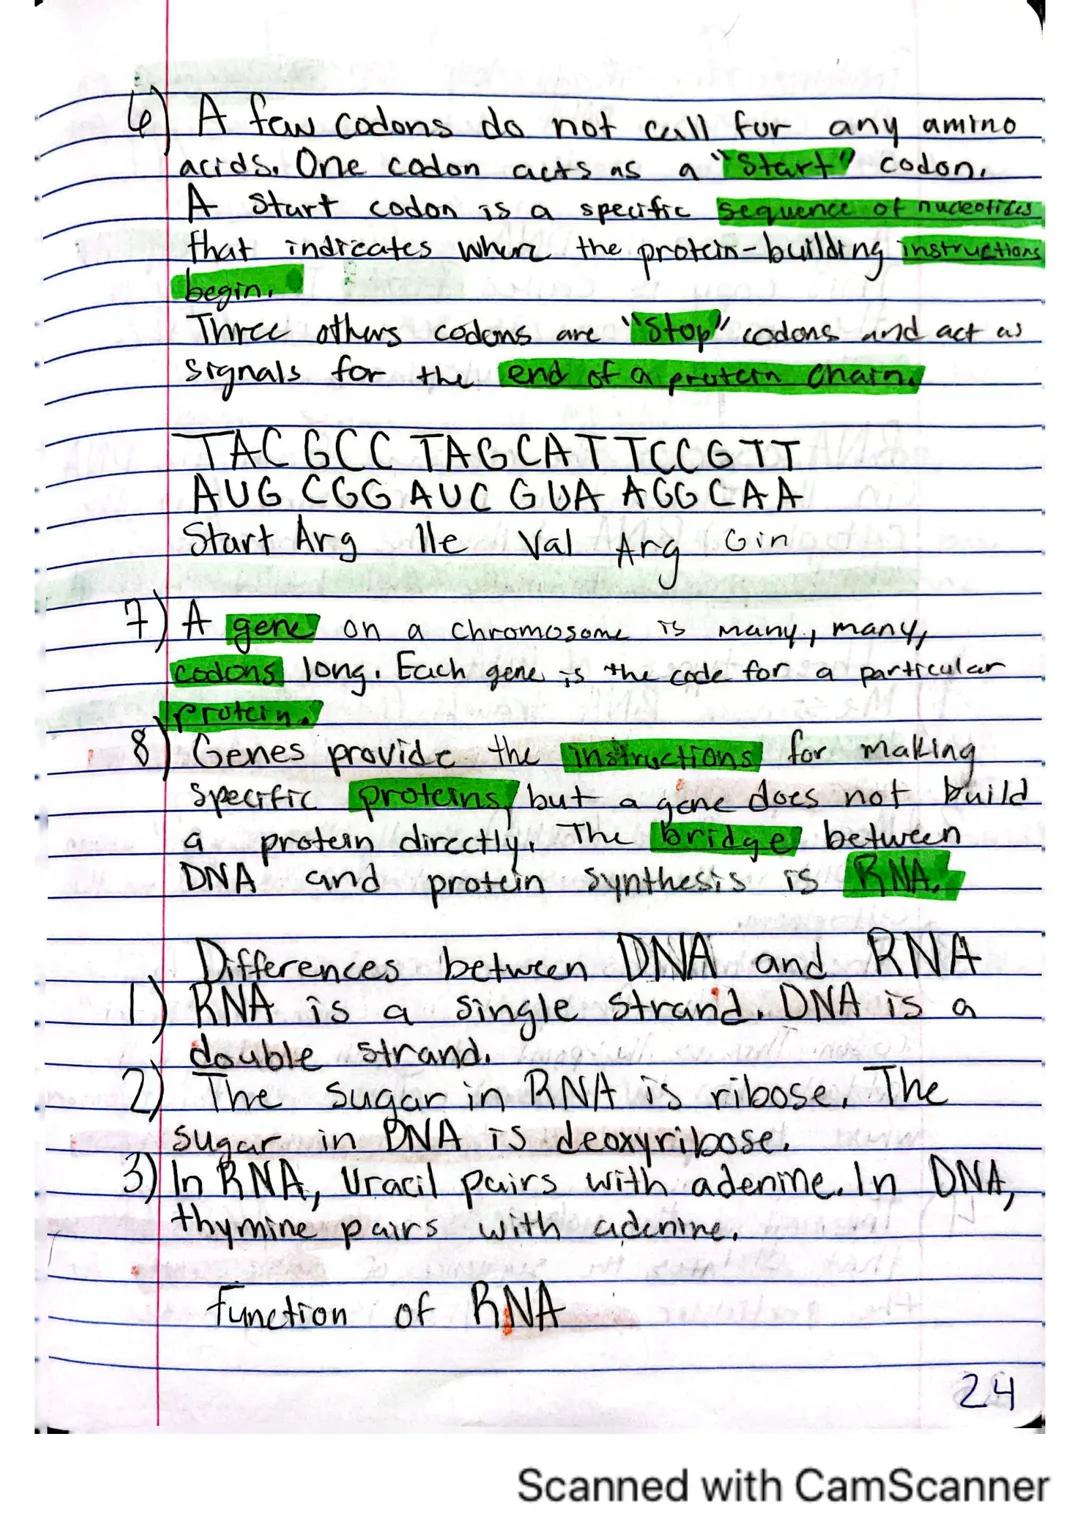 6) A few codons do not call for any amino
acids. One codon acts as a "Start" codon.
A Start codon is a specific sequence of nucleotides
that indicates where the protein-building instructions
begin.
Three others codons are "Stop" codons and act as
signals for the end of a protein chain.
TAC GCC TAG CAT TCC GTT
AUG CGG AUC GUA AGG CAA
Start Arg Ile Val Arg Gin
7) A gene on a chromosome is many, many,
codons long. Each gene is the code for a particular
protein.
8) Genes provide the instructions for making
specific proteins, but a gene does not build
a protein directly. The bridge between
DNA and protein synthesis is RNA.
Differences between DNA and RNA
1) RNA is a single strand. DNA is a
double strand.
2) The sugar in RNA is ribose. The
sugar in DNA is deoxyribose.
3) In RNA, Uracil pairs with adenine. In DNA,
thymine pairs with adenine.
Function of RNA
24
Scanned with CamScanner